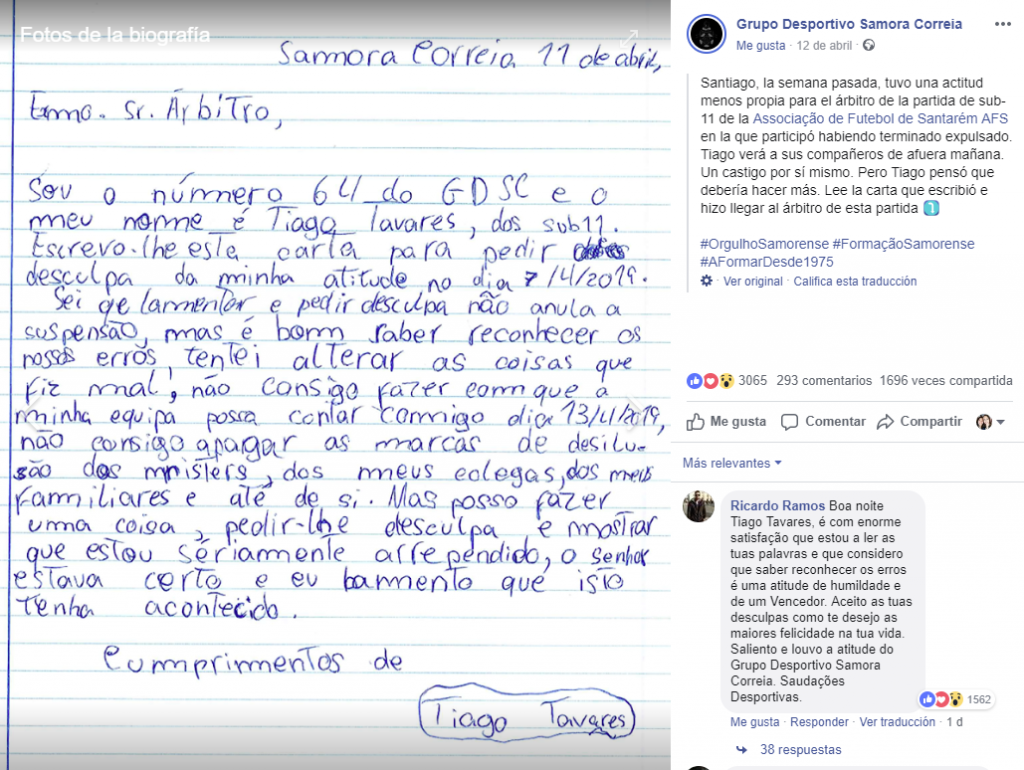 Fotos de la biografía
Sammora Correia 11 de abril,
Exmo. Sr. Árbitro,
Sou o número 64 do GDSC e o
meu nome é Tiago Tavares, dos sub11.
Escrevo-lhe esta carta para pedir
desculpa da minha atitude no dia 7/4/2019.
Sei qe lamentar e pedir desculpa não anula a
suspensão, mas é bom saber reconhecer os
nossos erros, tentei alterar as coisas que
fiz mal, não consigo fazer com que a
minha equipa possa contar comigo dia 13/4/2019,
não consigo apagar as marcas de desilu-
são dos misters, dos meus colegas, dos meus
familiares e até de si. Mas posso fazer
uma coisa, pedir-lhe desculpa e mostrar
que estou sériamente arrependido, o senhor
estava certo e eu lamento que isto
tenha acontecido.
Cumprimentos de
Tiago Tavares
Grupo Desportivo Samora Correia
Me gusta · 12 de abril ·
Santiago, la semana pasada, tuvo una actitud
menos propia para el árbitro de la partida de sub-
11 de la Associação de Futebol de Santarém AFS
en la que participó habiendo terminado expulsado.
Tiago verá a sus compañeros de afuera mañana.
Un castigo por sí mismo. Pero Tiago pensó que
debería hacer más. Lee la carta que escribió e
hizo llegar al árbitro de esta partida
#OrgulhoSamorense #FormaçãoSamorense
#AFormarDesde1975
Ver original · Califica esta traducción
3065 293 comentarios 1696 veces compartida
Me gusta Comentar Compartir
Más relevantes
Ricardo Ramos Boa noite
Tiago Tavares, é com enorme
satisfação que estou a ler as
tuas palavras e que considero
que saber reconhecer os erros
é uma atitude de humildade e
de um Vencedor. Aceito as tuas
desculpas como te desejo as
maiores felicidade na tua vida.
Saliento e louvo a atitude do
Grupo Desportivo Samora
Correia. Saudações
Desportivas.
1562
Me gusta · Responder · Ver traducción · 1 d
38 respuestas